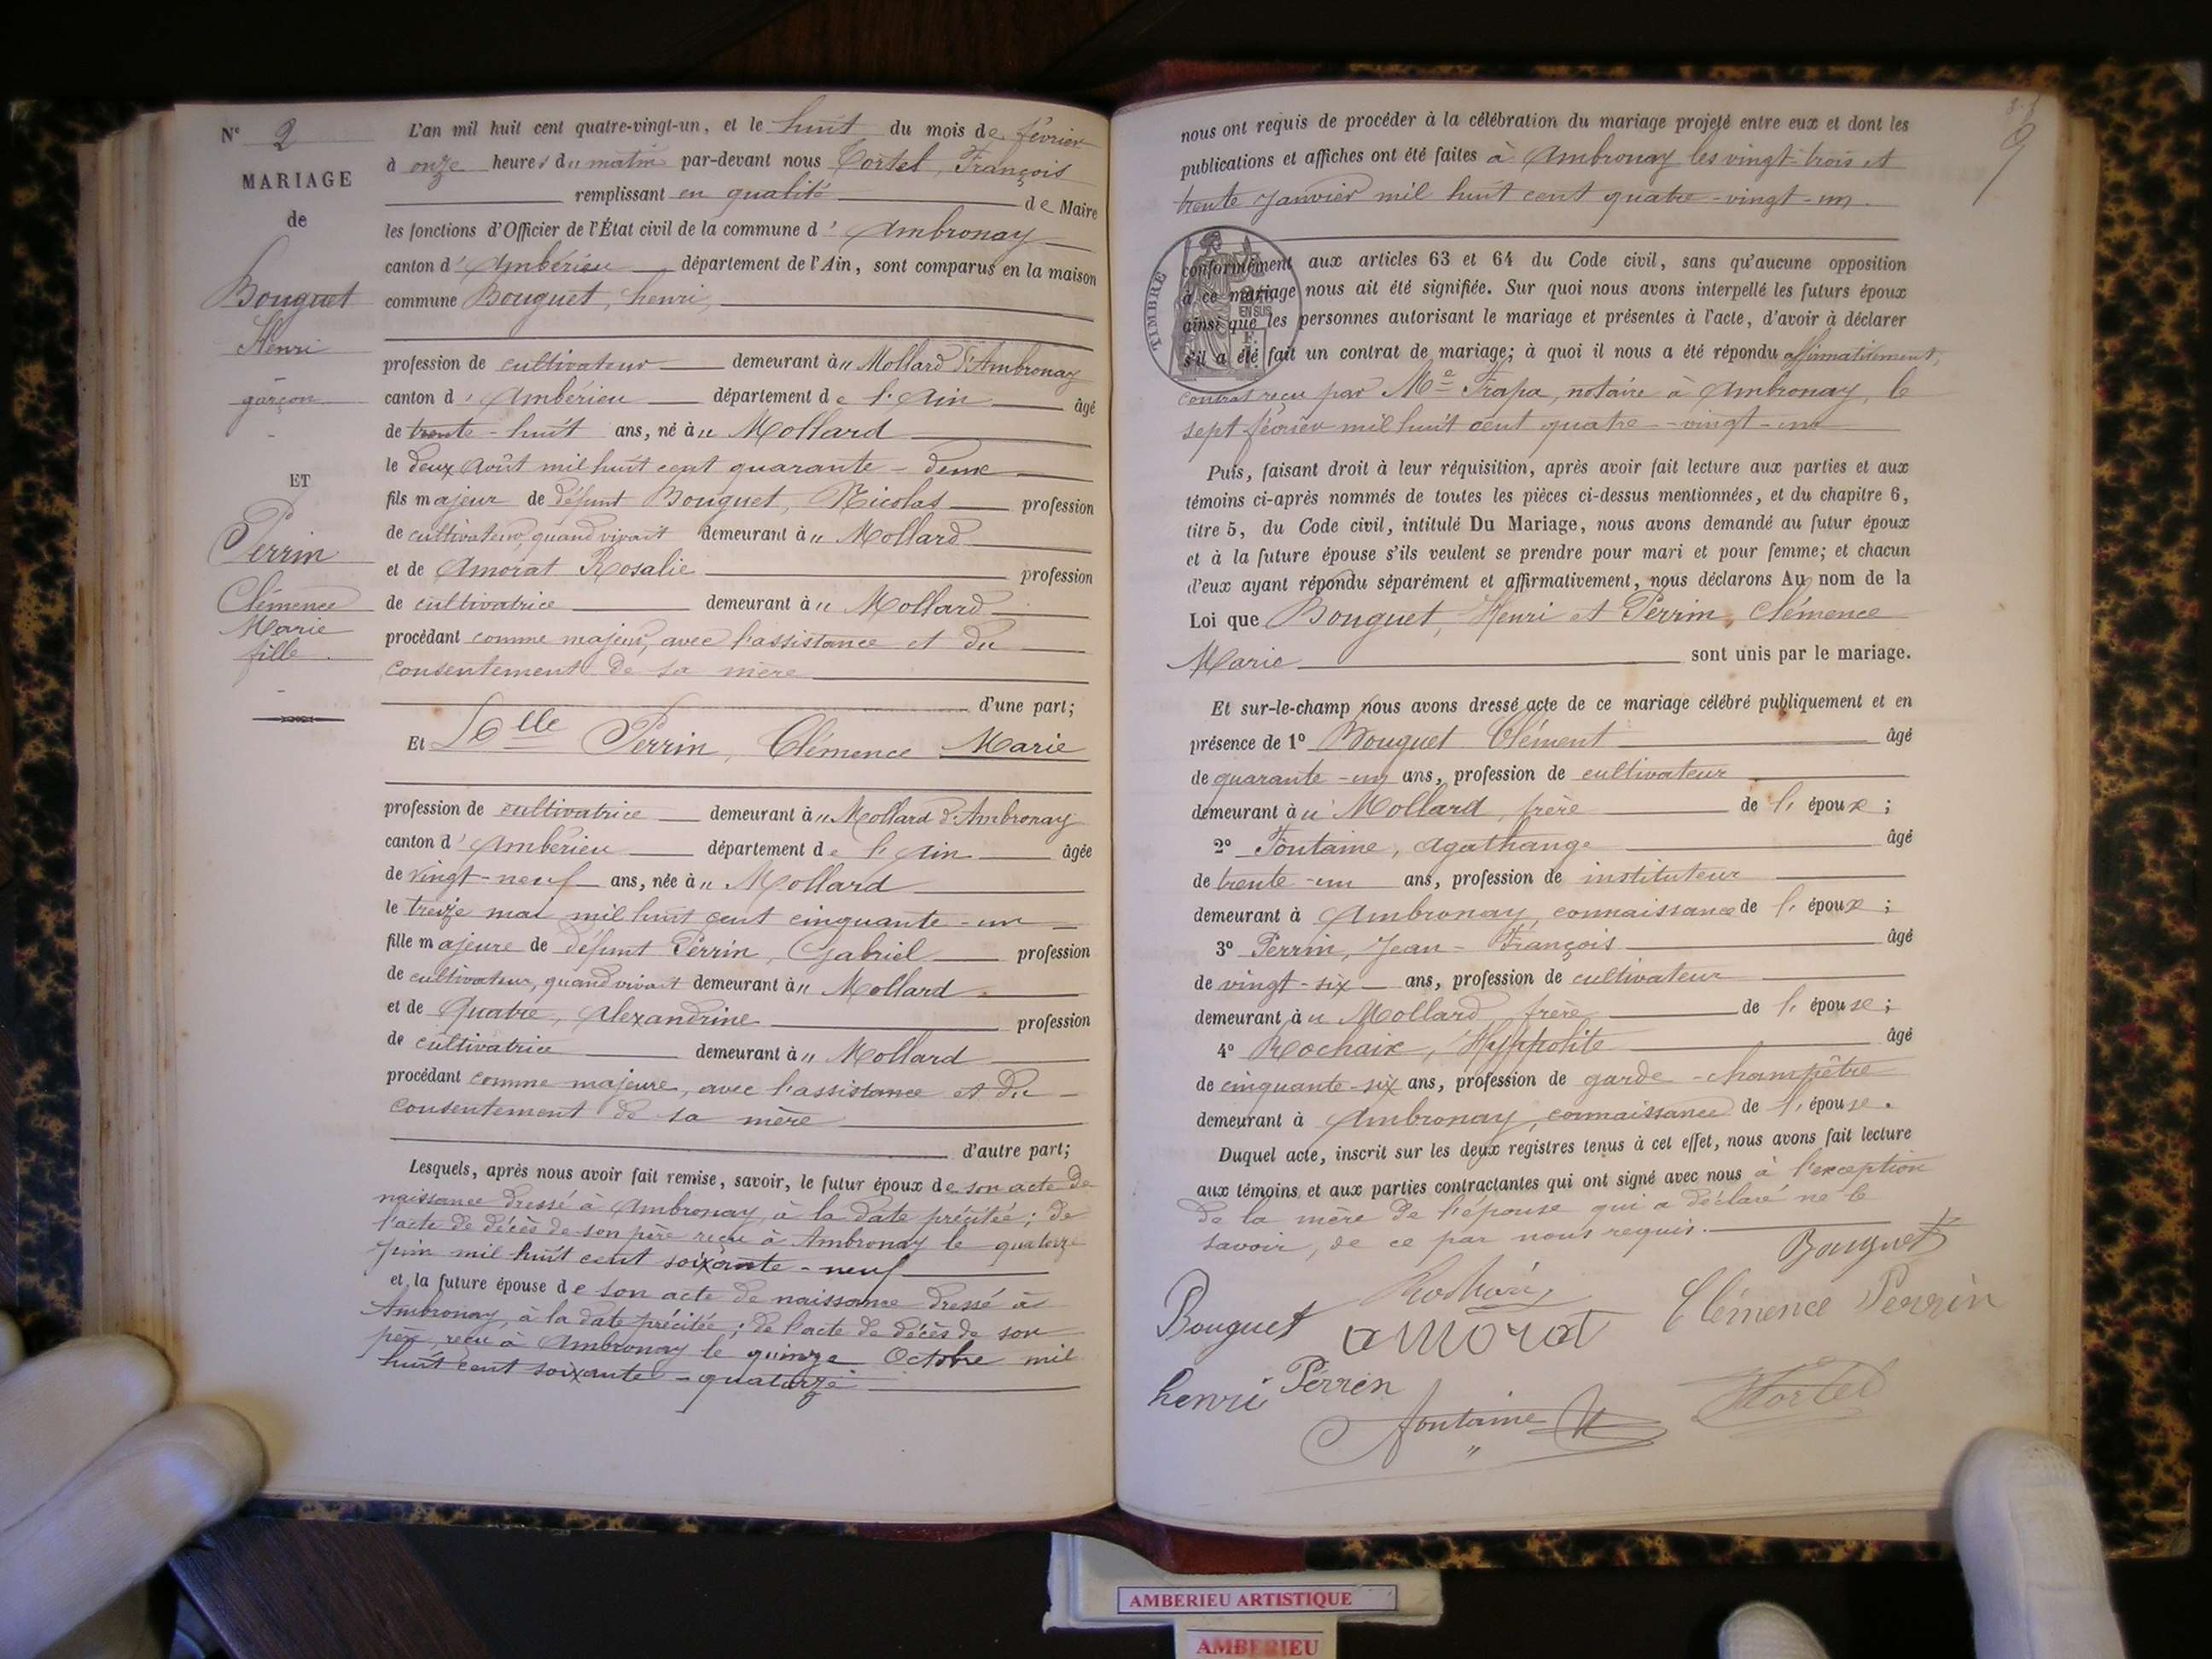 N° 2
MARIAGE
de
Bouguet
Henri
garçon
ET
Perrin
Clémence
Marie
fille
L'an mil huit cent quatre-vingt-un, et le huit du mois de février
à onze heures du matin par-devant nous Tortel, François
remplissant en qualité de Maire
les fonctions d'Officier de l'État civil de la commune d'Ambronay
canton d'Ambérieu département de l'Ain, sont comparus en la maison
commune Bouguet, henri,
profession de cultivateur demeurant à u Mollard d'Ambronay
canton d'Ambérieu département de l'Ain âgé
de trente-huit ans, né à u Mollard
le deux Août mil huit cent quarante-deux
fils majeur de défunt Bouguet, Nicolas profession
de cultivateur, quand vivait demeurant à u Mollard
et de Amorat Rosalie profession
de cultivatrice demeurant à u Mollard
procédant comme majeur, avec l'assistance et du
consentement de sa mère
d'une part;
Et Dlle Perrin, Clémence Marie
profession de cultivatrice demeurant à u Mollard d'Ambronay
canton d'Ambérieu département de l'Ain âgée
de vingt-neuf ans, née à u Mollard
le treize mai mil huit cent cinquante-un
fille majeure de défunt Perrin, Gabriel profession
de cultivateur, quand vivait demeurant à u Mollard
et de Quatre, Alexandrine profession
de cultivatrice demeurant à u Mollard
procédant comme majeure, avec l'assistance et du
consentement de sa mère
d'autre part;
Lesquels, après nous avoir fait remise, savoir, le futur époux de son acte de
naissance dressé à Ambronay, à la date précitée; de
l'acte de décès de son père reçu à Ambronay le quatorze
juin mil huit cent soixante-neuf
et la future épouse de son acte de naissance dressé à
Ambronay, à la date précitée; de l'acte de décès de son
père, reçu à Ambronay le quinze Octobre mil
huit cent soixante-quatorze
9
nous ont requis de procéder à la célébration du mariage projeté entre eux et dont les
publications et affiches ont été faites à Ambronay les vingt-trois et
trente Janvier mil huit cent quatre-vingt-un.
TIMBRE
EN SUS
conformément aux articles 63 et 64 du Code civil, sans qu'aucune opposition
à ce mariage nous ait été signifiée. Sur quoi nous avons interpellé les futurs époux
ainsi que les personnes autorisant le mariage et présentes à l'acte, d'avoir à déclarer
s'il a été fait un contrat de mariage; à quoi il nous a été répondu affirmativement,
contrat reçu par Me Trapa, notaire à Ambronay, le
sept février mil huit cent quatre-vingt-un
Puis, faisant droit à leur réquisition, après avoir fait lecture aux parties et aux
témoins ci-après nommés de toutes les pièces ci-dessus mentionnées, et du chapitre 6,
titre 5, du Code civil, intitulé Du Mariage, nous avons demandé au futur époux
et à la future épouse s'ils veulent se prendre pour mari et pour femme; et chacun
d'eux ayant répondu séparément et affirmativement, nous déclarons Au nom de la
Loi que Bouguet, Henri et Perrin, Clémence
Marie sont unis par le mariage.
Et sur-le-champ nous avons dressé acte de ce mariage célébré publiquement et en
présence de 1° Bouguet Clément âgé
de quarante-un ans, profession de cultivateur
demeurant à u Mollard, frère de l'époux;
2° Fontaine, Agathange âgé
de trente-un ans, profession de instituteur
demeurant à Ambronay, connaissance de l'époux;
3° Perrin, Jean-François âgé
de vingt-six ans, profession de cultivateur
demeurant à u Mollard, frère de l'épouse;
4° Rochaix, Hyppolite âgé
de cinquante-six ans, profession de garde-champêtre
demeurant à Ambronay, connaissance de l'épouse.
Duquel acte, inscrit sur les deux registres tenus à cet effet, nous avons fait lecture
aux témoins et aux parties contractantes qui ont signé avec nous à l'exception
de la mère de l'épouse qui a déclaré ne le
savoir, de ce par nous requis.
Bouguet
Bouguet amorat Clémence Perrin
henri Perrin
fontaine Tortel
AMBERIEU ARTISTIQUE
AMBERIEU